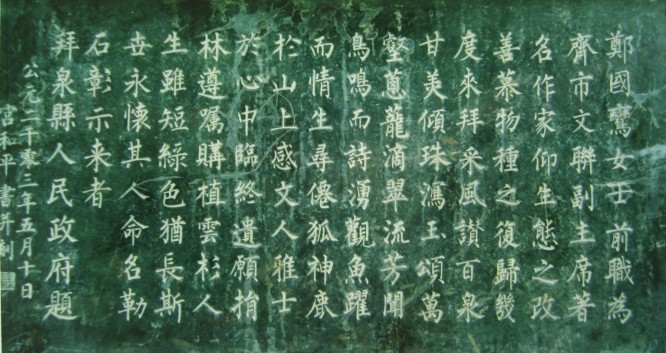 鄭國鸞女士前職為
齊市文聯副主席著
名作家仰生態之改
善慕物種之復歸幾
度來拜采風讃百泉
甘美傾珠瀉玉頌萬
壑蔥蘢滴翠流芳聞
鳥鳴而詩湧觀魚躍
而情生尋僊狐神鹿
扵山上感文人雅士
於心中臨終遺願捐
林遵囑購植雲杉人
生雖短綠色猶長斯
世永懷其人命名勒
石彰示来者
拜泉縣人民政府題
公元二千零三年五月十日
宮和平書并刻